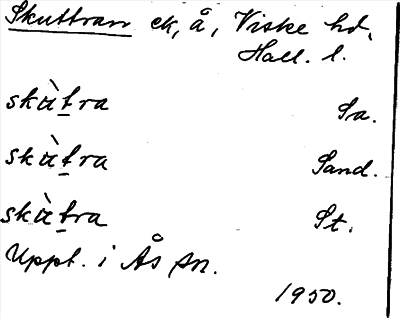 Skuttran ek, å, Viske hd,
Hall. l.
skùt̠ra Sa.
skùt̠ra Sand.
skùt̠ra St.
Uppt. i Ås sn.
1950.